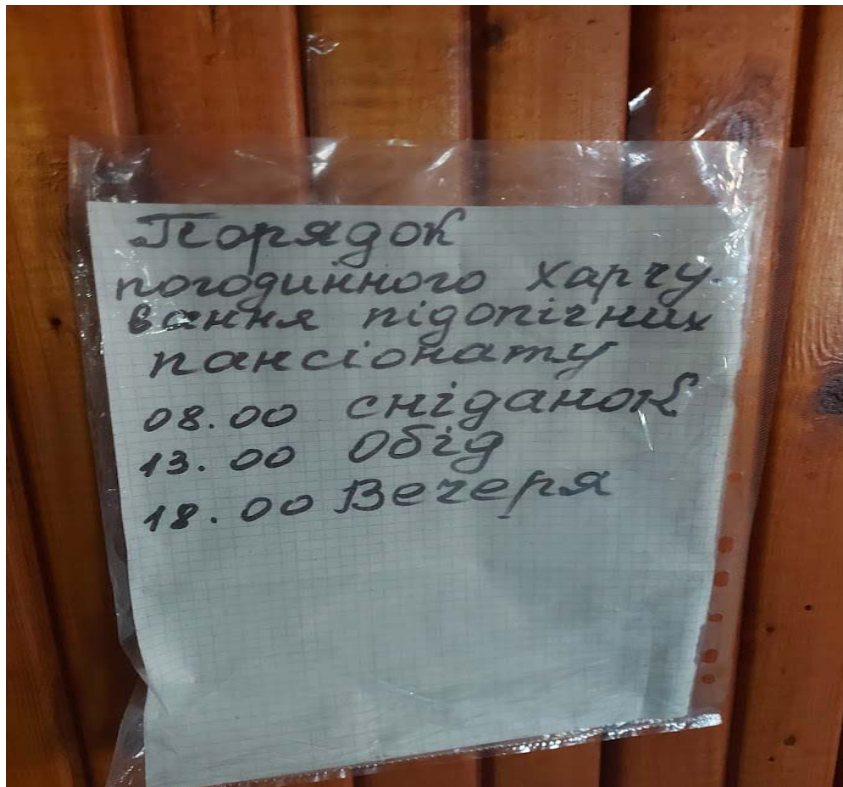 Порядок
погодинного харчу-
вання підопічних
пансіонату
08.00 сніданок
13.00 Обід
18.00 Вечеря